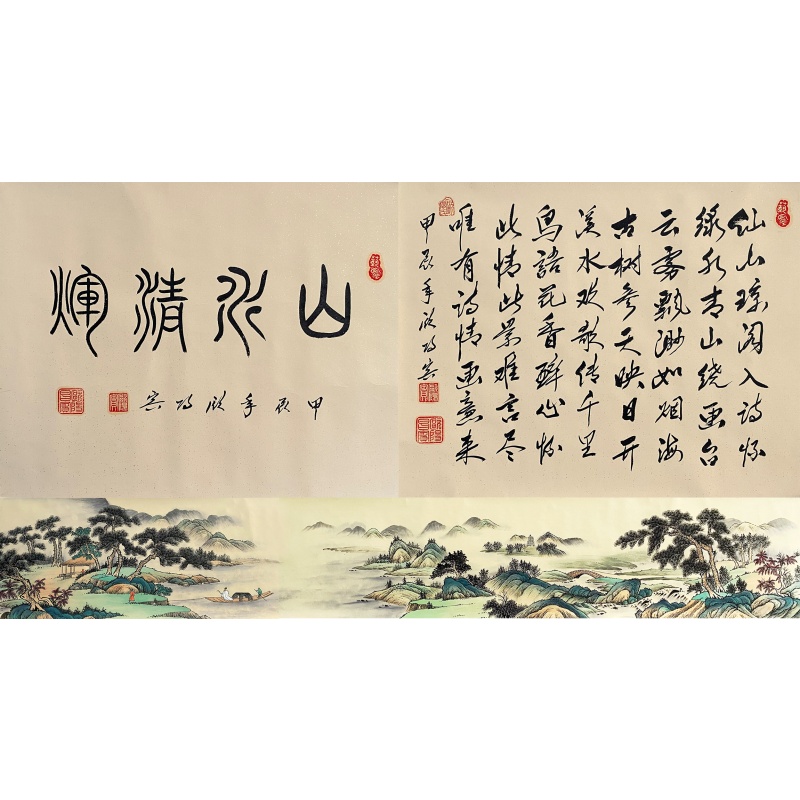 山水清煇
甲辰年
仙山琼阁入诗怀
绿水青山绕画台
云雾飘渺如烟海
古树参天映日开
溪水欢歌传千里
鸟语花香醉心怀
此情此景难言尽
唯有诗情画意来
甲辰年